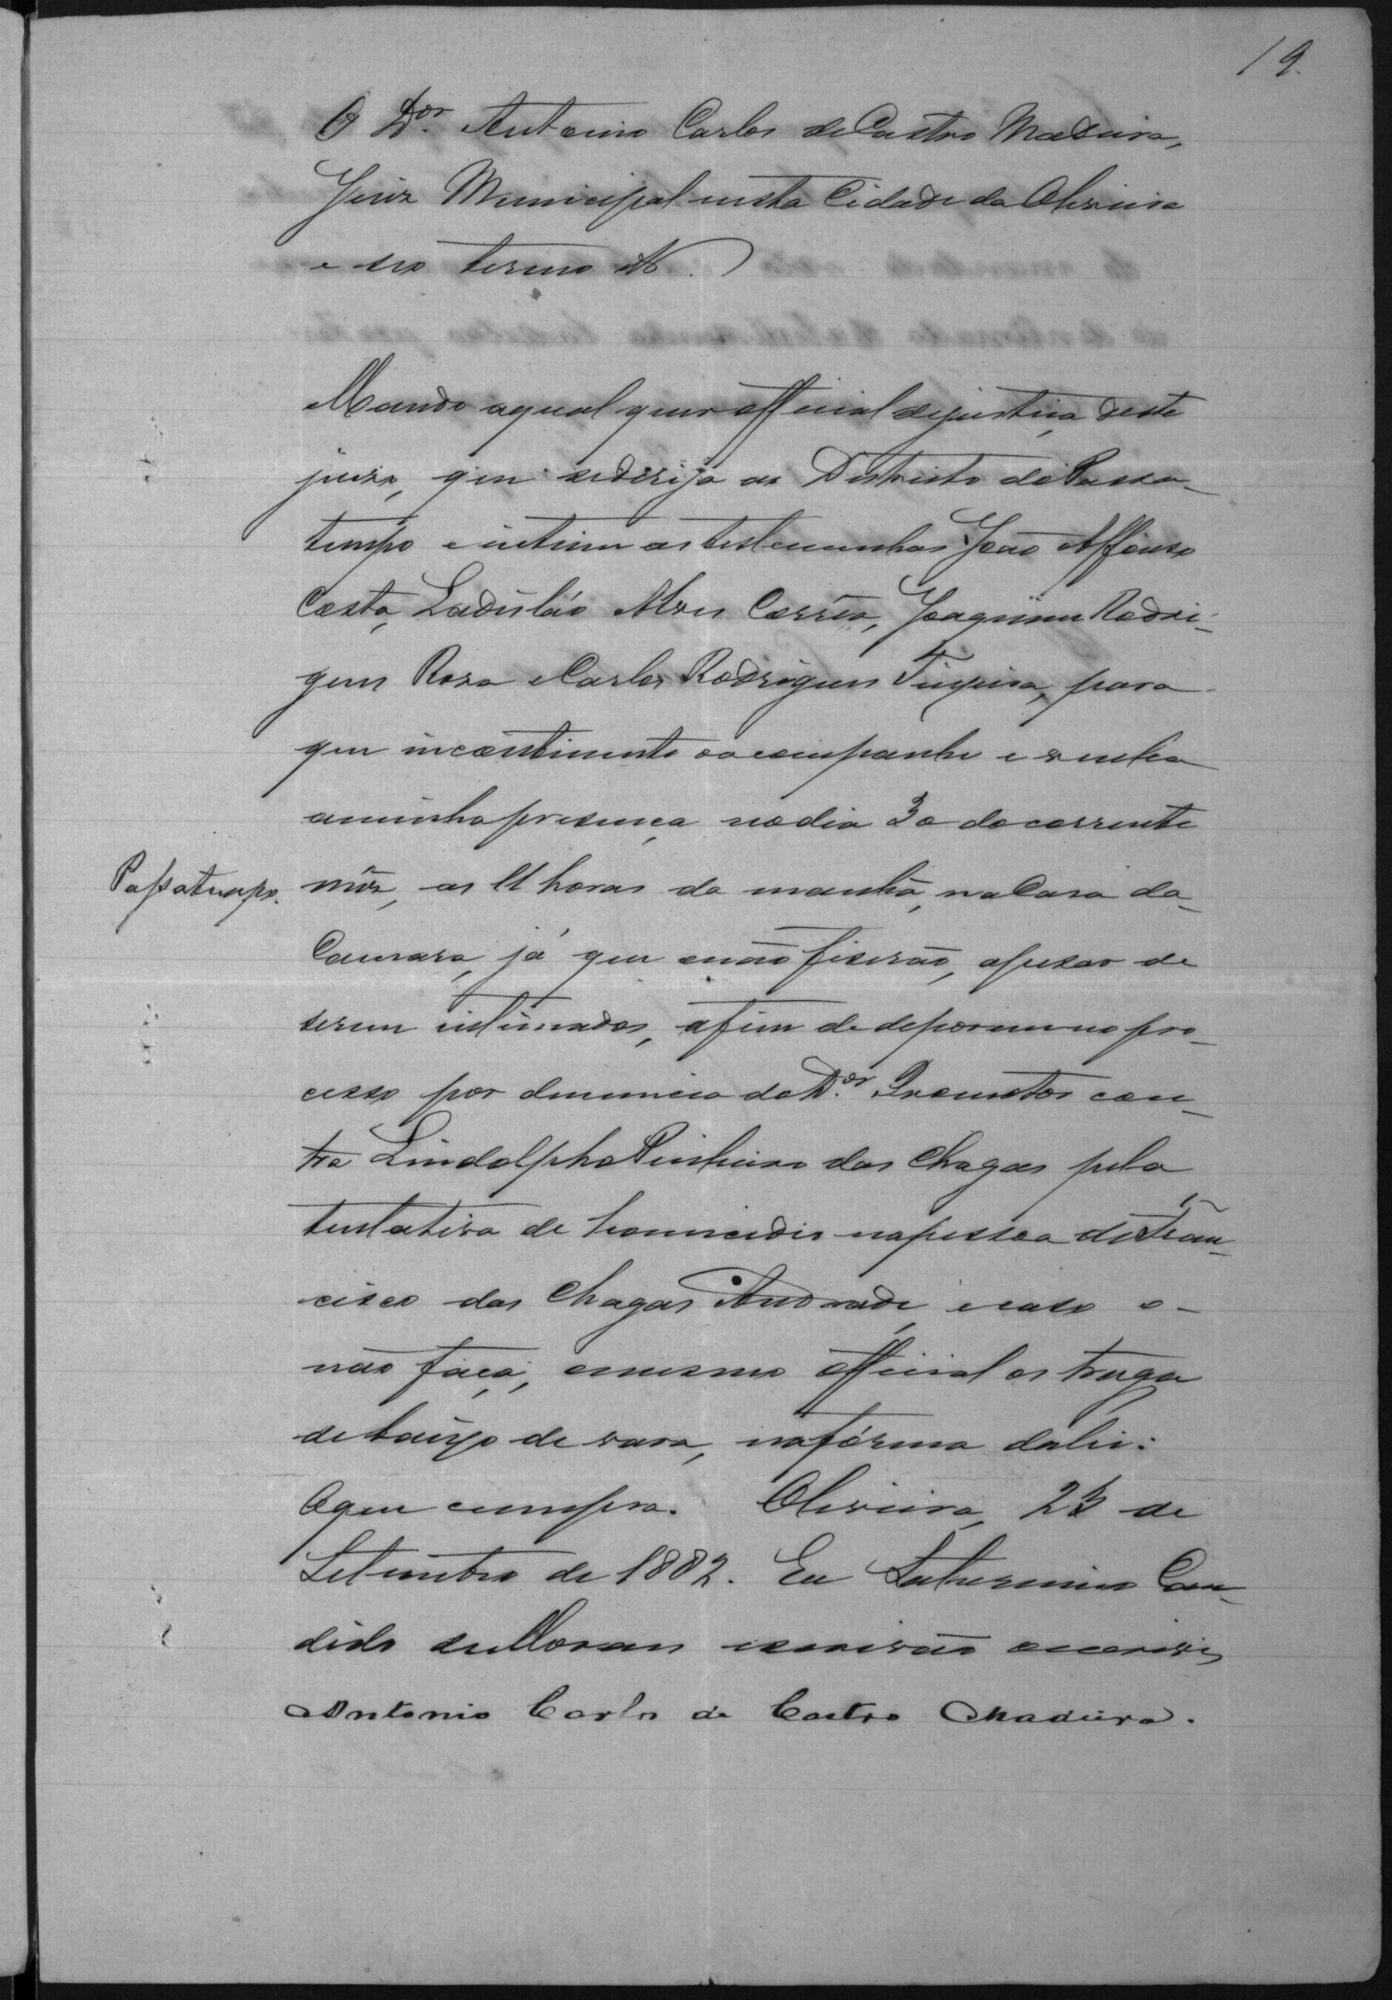 19.
O Dor. Antonio Carlos de Castro Madeira,
Juiz Municipal nesta Cidade da Oliveira
e seo termo &
Mando a qual quer official de justiça deste
juizo, que se derija ao Districto do Passa-
tempo e intime as testemunhas João Affonso
Costa, Ladisláo Alves Corrêa, Joaquim Rodri-
gues Rosa e Carlos Rodrigues Teixeira, para
que incontinente o acompanhe e venha
a minha presença no dia 30 do corrente
Passatempo.
mez, as 11 horas da manhã, na Casa da
Camara, já que o não fiserão, apesar de
serem intimados, afim de deporem no pro-
cesso por denuncia do Dor. Promotor con-
tra Lindolpho Pinheiro das Chagas pela
tentativa de homicidio na pessoa de Fran-
cisco das Chagas Andrade, e caso o
não faça, o mesmo official os traga
debaixo de vara, na fórma da lei:
O que cumpra. Oliveira, 23 de
Setembro de 1882. Eu Saturnino Can-
dido de Moraes escrivão o escrevi
Antonio Carlos de Castro Madeira.